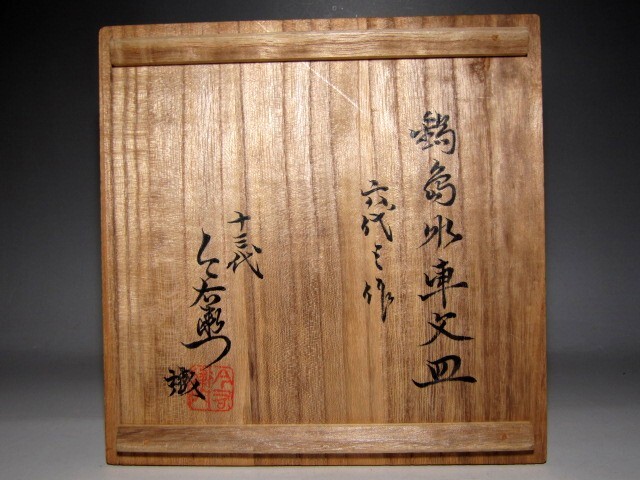 鍋島水車文皿
六代之作
十三代
今右衛門
識